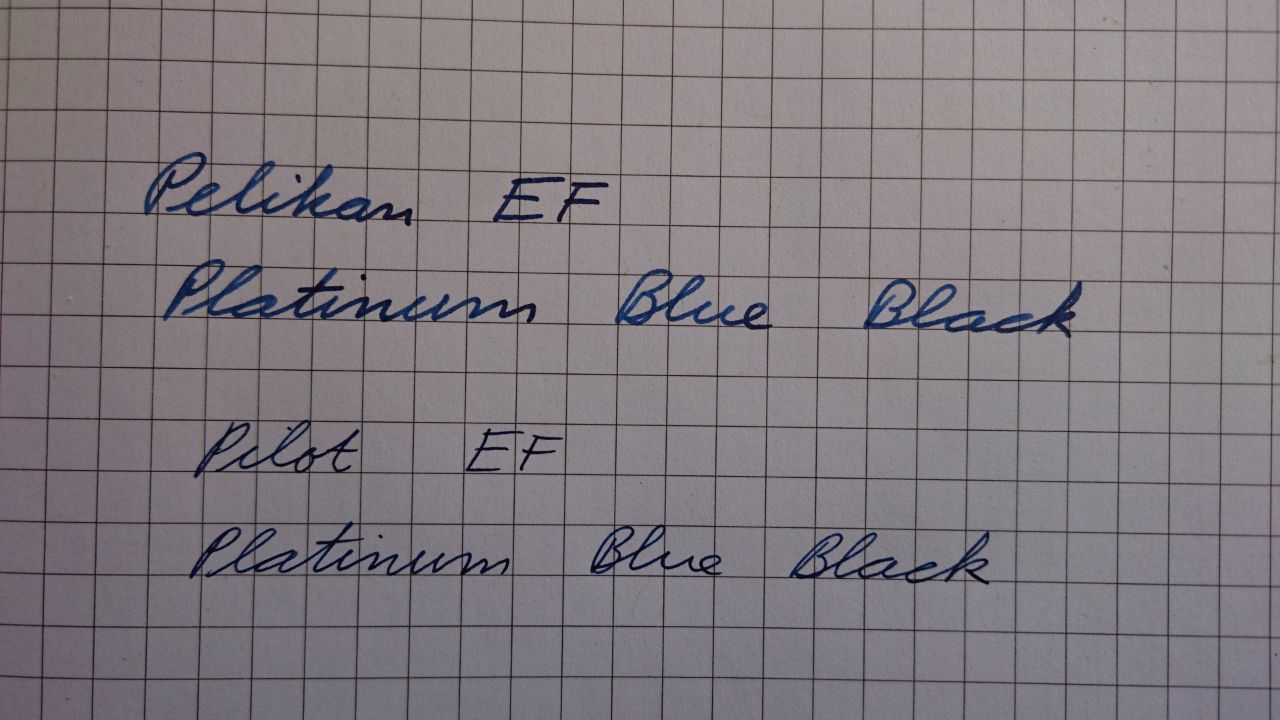 Pelikan EF
Platinum Blue Black
Pilot EF
Platinum Blue Black